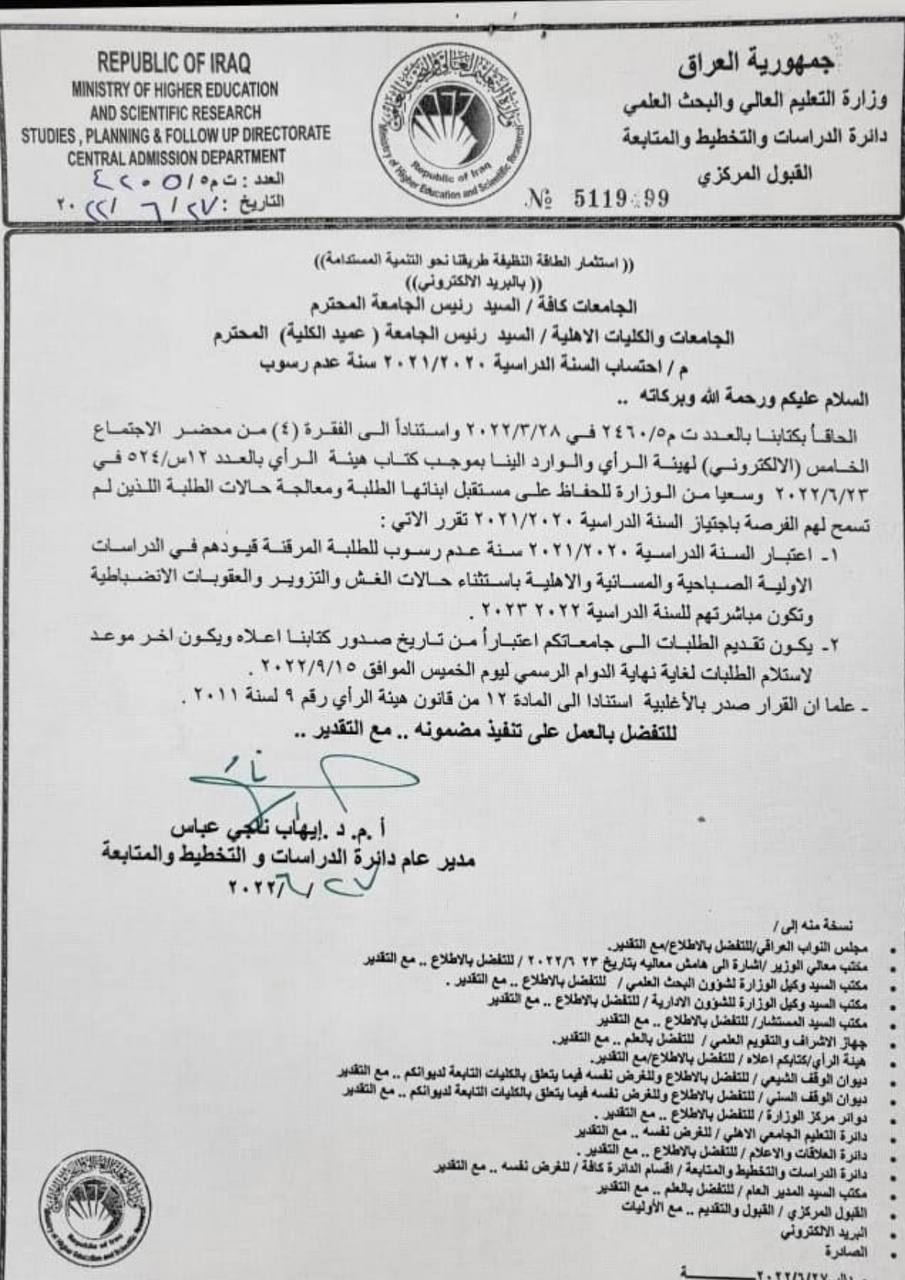 REPUBLIC OF IRAQ
MINISTRY OF HIGHER EDUCATION
AND SCIENTIFIC RESEARCH
STUDIES , PLANNING & FOLLOW UP DIRECTORATE
CENTRAL ADMISSION DEPARTMENT
العدد : ت م٥/٤٢٠٥
التاريخ : ٢٧/ ٦ /٢٠٢٢
Ministry of Higher Education and Scientific Research
Republic of Iraq
جمهورية العراق
وزارة التعليم العالي والبحث العلمي
دائرة الدراسات والتخطيط والمتابعة
القبول المركزي
№ 5119 99
(( استثمار الطاقة النظيفة طريقنا نحو التنمية المستدامة))
(( بالبريد الالكتروني))
الجامعات كافة / السيد رئيس الجامعة المحترم
الجامعات والكليات الاهلية / السيد رئيس الجامعة ( عميد الكلية) المحترم
م / احتساب السنة الدراسية ٢٠٢١/٢٠٢٠ سنة عدم رسوب
السلام عليكم ورحمة الله وبركاته ..
الحاقاً بكتابنا بالعدد ت م٢٤٦٠/٥ في ٢٠٢٢/٣/٢٨ واستناداً الى الفقرة (٤) من محضر الاجتماع
الخامس (الالكتروني) لهيئة الرأي والوارد الينا بموجب كتاب هيئة الرأي بالعدد ١٢س/٥٢٤ في
٢٠٢٢/٦/٢٣ وسعيا من الوزارة للحفاظ على مستقبل ابنائها الطلبة ومعالجة حالات الطلبة اللذين لم
تسمح لهم الفرصة باجتياز السنة الدراسية ٢٠٢١/٢٠٢٠ تقرر الاتي :
١- اعتبار السنة الدراسية ٢٠٢١/٢٠٢٠ سنة عدم رسوب للطلبة المرقنة قيودهم في الدراسات
الاولية الصباحية والمسائية والاهلية باستثناء حالات الغش والتزوير والعقوبات الانضباطية
وتكون مباشرتهم للسنة الدراسية ٢٠٢٢ ٢٠٢٣ .
٢- يكون تقديم الطلبات الى جامعاتكم اعتباراً من تاريخ صدور كتابنا اعلاه ويكون اخر موعد
لاستلام الطلبات لغاية نهاية الدوام الرسمي ليوم الخميس الموافق ٢٠٢٢/٩/١٥ .
- علما ان القرار صدر بالأغلبية استنادا الى المادة ١٢ من قانون هيئة الرأي رقم ٩ لسنة ٢٠١١ .
للتفضل بالعمل على تنفيذ مضمونه .. مع التقدير ..
أ .م. د .إيهاب ناجي عباس
مدير عام دائرة الدراسات و التخطيط والمتابعة
٢٧/ ٦ /٢٠٢٢
نسخة منه إلى /
مجلس النواب العراقي/للتفضل بالاطلاع/مع التقدير.
مكتب معالي الوزير /اشارة الى هامش معاليه بتاريخ ٢٣ ٢٠٢٢/٦ / للتفضل بالاطلاع .. مع التقدير
مكتب السيد وكيل الوزارة لشؤون البحث العلمي / للتفضل بالاطلاع .. مع التقدير .
مكتب السيد وكيل الوزارة للشؤون الادارية / للتفضل بالاطلاع .. مع التقدير
مكتب السيد المستشار/ للتفضل بالاطلاع .. مع التقدير
جهاز الاشراف والتقويم العلمي / للتفضل بالعلم .. مع التقدير.
هيئة الرأي/كتابكم اعلاه / للتفضل بالاطلاع/مع التقدير.
ديوان الوقف الشيعي / للتفضل بالاطلاع وللغرض نفسه فيما يتعلق بالكليات التابعة لديوانكم .. مع التقدير
ديوان الوقف السني / للتفضل بالاطلاع وللغرض نفسه فيما يتعلق بالكليات التابعة لديوانكم .. مع التقدير
دوائر مركز الوزارة / للتفضل بالاطلاع .. مع التقدير .
دائرة التعليم الجامعي الاهلي / للغرض نفسه .. مع التقدير
دائرة العلاقات والاعلام / للتفضل بالاطلاع .. مع التقدير .
دائرة الدراسات والتخطيط والمتابعة / اقسام الدائرة كافة / للغرض نفسه .. مع التقدير
مكتب السيد المدير العام / للتفضل بالعلم .. مع التقدير
القبول المركزي / القبول والتقديم .. مع الأوليات
البريد الالكتروني
الصادرة
٢٠٢٢/٦/٢٧
Republic of Iraq